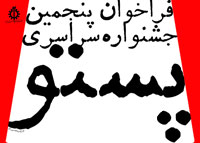 فراخوان پنجمین
جشنواره سراسری
پستو